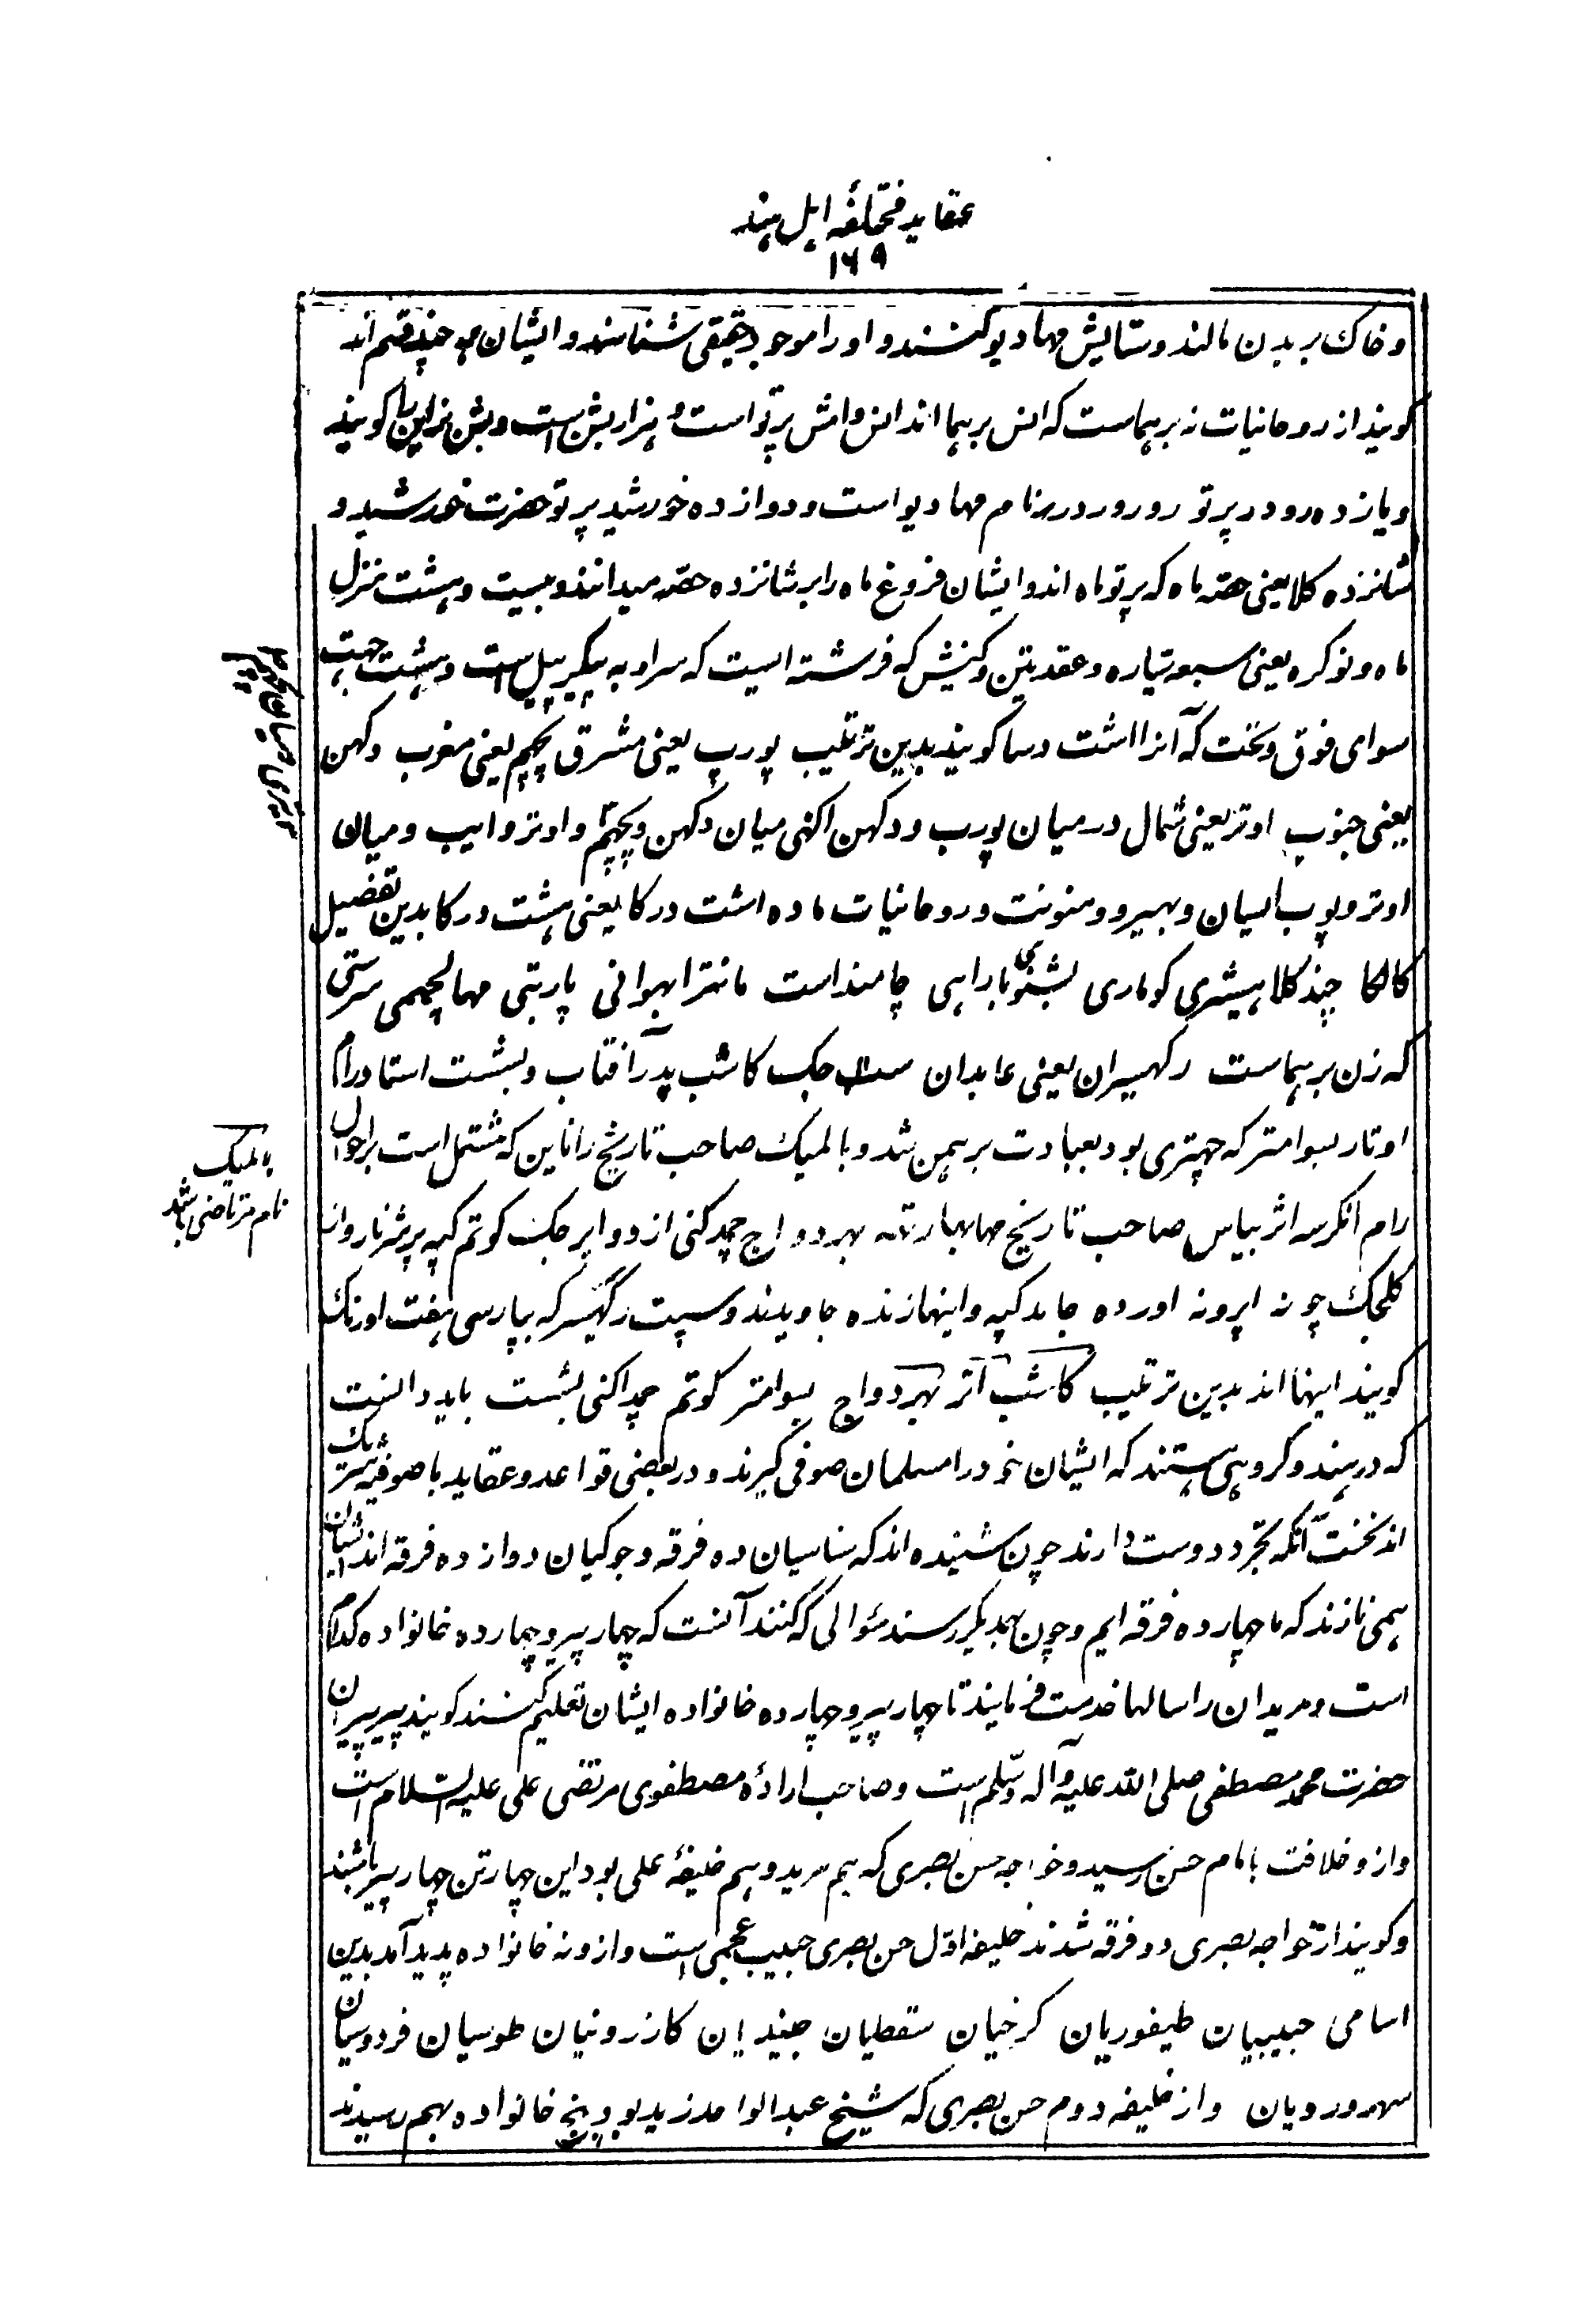 عقاید مختلفهٔ اهل هند
١٦٩
و خاک بر بدن مالند و ستایش مهادیو کنند و او را موجود حقیقی شناسند و ایشان هم چند قسم اند
کویند از روحانیات نه برهماست که انس برهما اند انس و امش پرتو است و هزار بشن است و بشن نراین را کویند
و یازده رودر پرتو رودر و رودر نام مهادیو است و دوازده خورشید پرتو حضرت خورشید و
شانزده کلا یعنی حصه ماه که پرتو ماه اند و ایشان فروغ ماه را بر شانزده حصه میدانند و بیست و هشت منزل
ماه و نوکره یعنی سبعه سیاره و عقدتین و کنیش که فرشته ایست که سر او به پیکر پیل است و هشت جهت
سوای فوق و تحت که آنرا اشت دسا کویند بدین ترتیب پورب یعنی مشرق پچهم یعنی مغرب دکهن
یعنی جنوب اوتر یعنی شمال در میان پورب و دکهن اکنی میان دکهن و پچهم و اوتر و ایب و میان
اوتر و پورب ایسان و بهیرو و هنونت و روحانیات ماده اشت درکا یعنی هشت درکا بدین تفصیل
کالکا چند کلا هیشری کوماری بشنوی باراهی چامنداست مانترا بهوانی پاربتی مهالچهمی سرستی
که زن برهماست رکهیسران یعنی عابدان ست جک کاشب پدر آفتاب و بشست استاد رام
اوتار بسوامتر که چهتری بود بعبادت برهمن شد و بالمیک صاحب تاریخ راماین که مشتمل است بر احوال
رام انکرسه اثر بیاس صاحب تاریخ مهابهارته بهردواج جمدکنی از دواپر جک کوتم
کلجک چونه اورده جابد کپه و اینها زنده جاویدند و سپت رکهیسر که بپارسی هفت اورنک
کویند اینها اند بدین ترتیب کاشب آتر بهردواج بسوامتر کوتم جمداکنی بشست باید دانست
که در هند و کروهی هستند که ایشان خود را مسلمان صوفی کیرند و در بعضی قواعد و عقاید با صوفیه شریک
اند نخست آنکه تجرد دوست دارند چون شنیده اند که سناسیان ده فرقه و جوکیان دوازده فرقه اند ایشان
همی نازند که ما چهارده فرقه ایم و چون بهمدیکر رسند سؤالی که کنند آنست که چهار پیر و چهارده خانواده کدام
است و مریدان را سالها خدمت فرمایند تا چهار پیر و چهارده خانواده ایشان تعلیم کنند کویند پیر پیران
حضرت محمد مصطفی صلی الله علیه و آله و سلم است و صاحب ارادهٔ مصطفوی مرتضی علی علیه السلام است
و ازو خلافت بامام حسن رسید و خواجه حسن بصری که هم مرید و هم خلیفهٔ علی بود این چهار تن چهار پیر باشند
و کویند از خواجه بصری دو فرقه شدند خلیفه اول حسن بصری حبیب عجمی است و ازو نه خانواده پدید آمد بدین
اسامی حبیبیان طیفوریان کرخیان سقطیان جنیدیان کازرونیان طوسیان فردوسیان
سهروردیان و از خلیفه دوم حسن بصری که شیخ عبدالواحد زید بود پنج خانواده بهم رسیدند
بالمیک
نام مرتاضی باشد